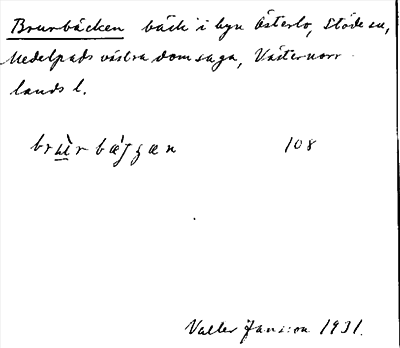 Brurbäcken bäck i byn Österlo, Stöde sn,
Medelpads västra domsaga, Västernorr-
lands l.
108
Valter Jans:on 1931.